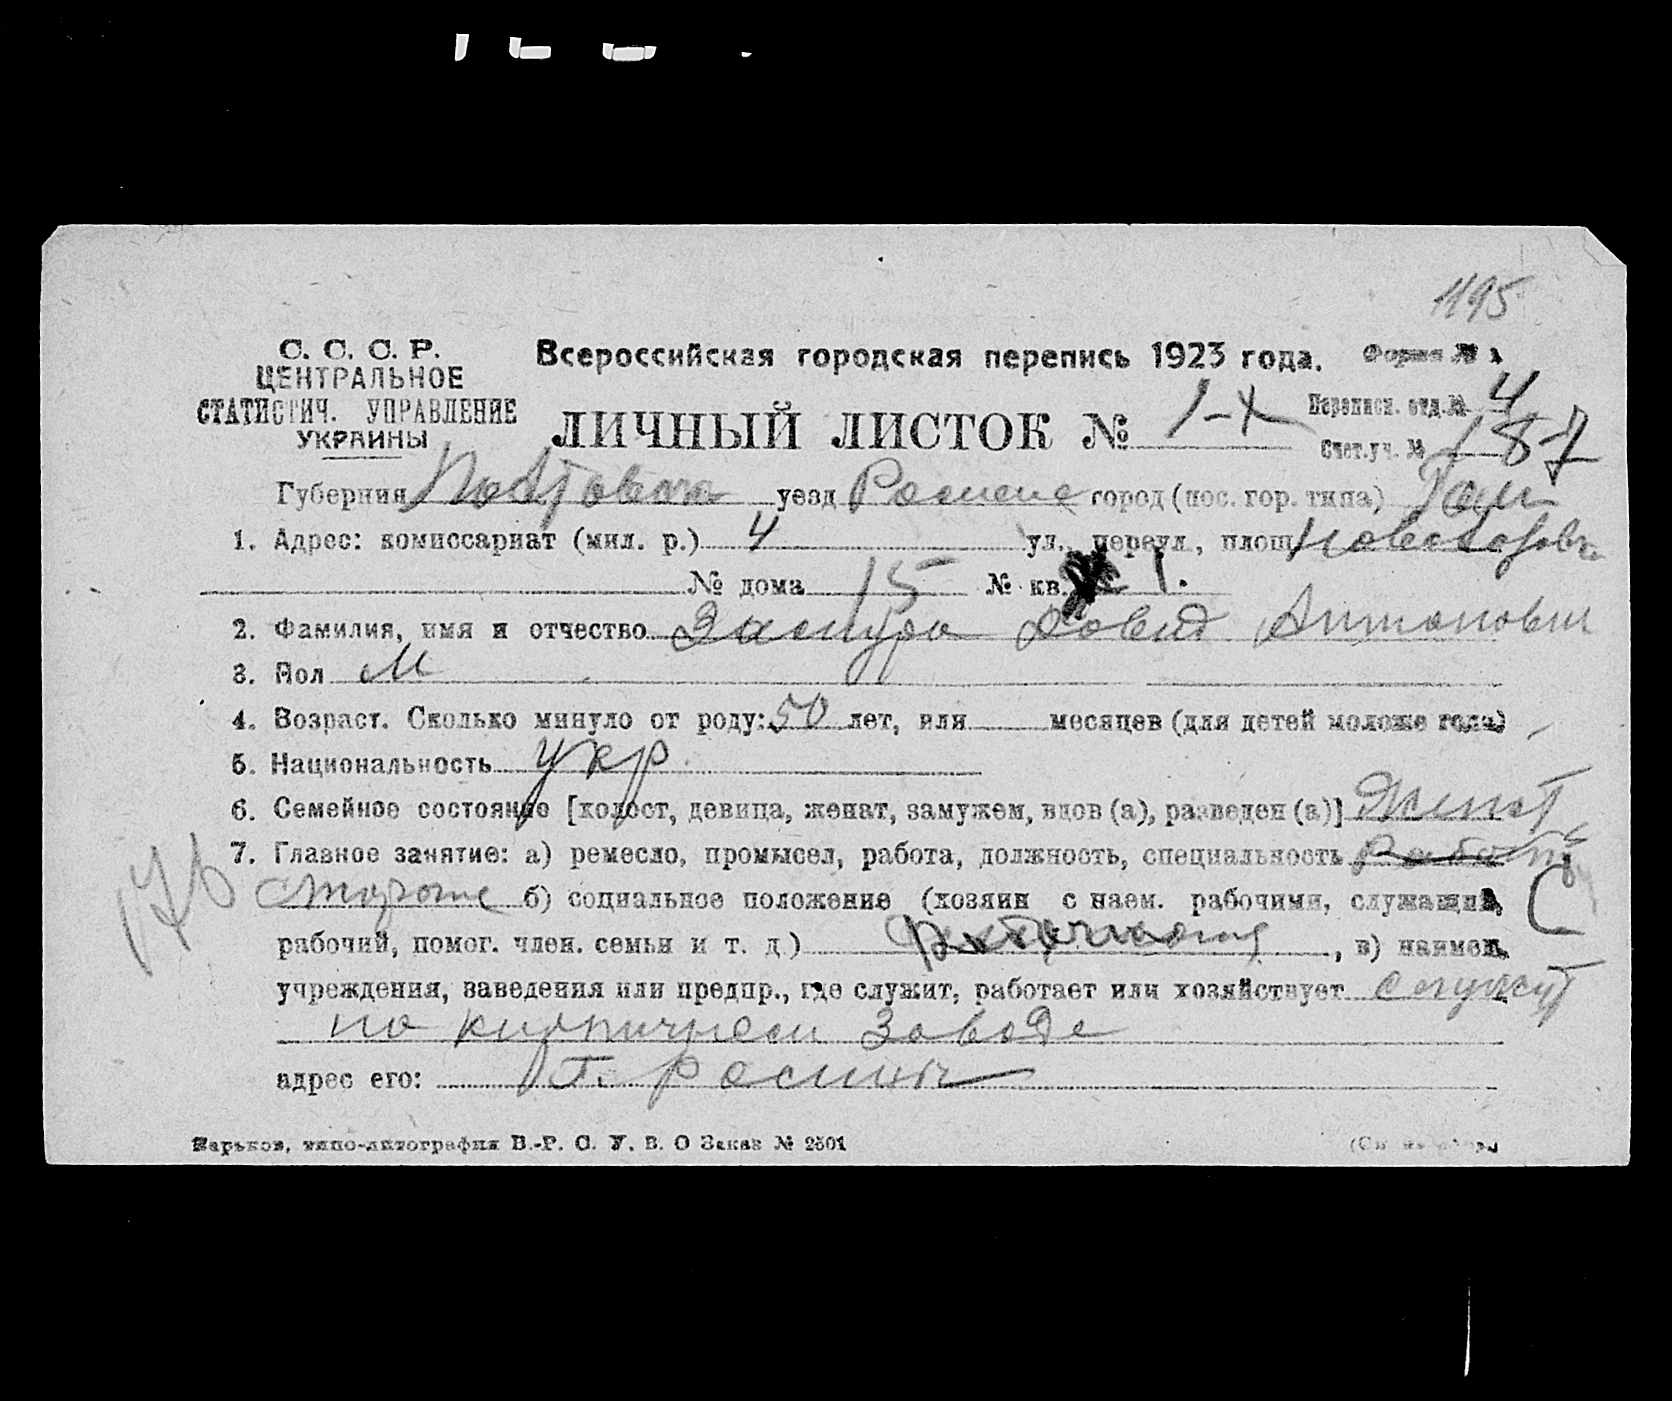 1195
С. С. С. Р.
ЦЕНТРАЛЬНОЕ
СТАТИСТИЧ. УПРАВЛЕНИЕ
УКРАИНЫ
Всероссийская городская перепись 1923 года.
Форма № 1
ЛИЧНЫЙ ЛИСТОК №
Переписн. отд. № 4
Счет. уч. № 187
Губерния Полтовска уезд город (пос. гор. типа)
1. Адрес: комиссариат (мил. р.) 4 ул., переул., площ.
№ дома 15 № кв. 1.
2. Фамилия, имя и отчество Довид Антонович
3. Пол М
4. Возраст. Сколько минуло от роду: 50 лет, или месяцев (для детей моложе года)
5. Национальность укр.
6. Семейное состояние [холост, девица, женат, замужем, вдов (а), разведен (а)] Женат
7. Главное занятие: а) ремесло, промысел, работа, должность, специальность
176
сторож б) социальное положение (хозяин с наем. рабочими, служащий,
рабочий, помог. член. семьи и т. д.) , в) наимен.
учреждения, заведения или предпр., где служит, работает или хозяйствует служит
на кирпичном заводе
адрес его: г. Ромны
Харьков, типо-литография В.-Р. С. У. В. О Заказ № 2501